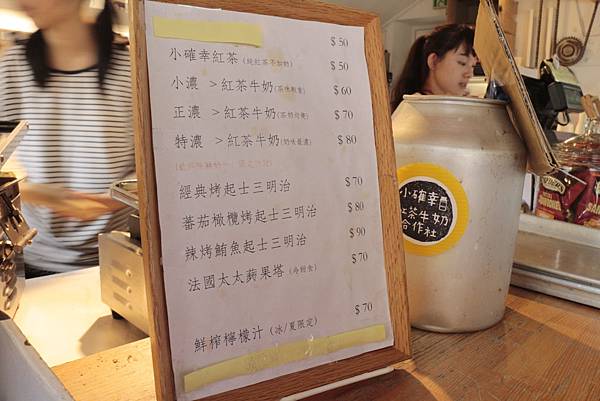 $50
小確幸紅茶(純紅茶不加奶) $50
小濃 > 紅茶牛奶 $60
正濃 > 紅茶牛奶 $70
特濃 > 紅茶牛奶(奶味最濃) $80
經典烤起士三明治 $70
蕃茄橄欖烤起士三明治 $80
辣烤鮪魚起士三明治 $90
法國太太蘋果塔(冷甜食) $70
鮮榨檸檬汁(冰/夏限定) $70
小確幸
紅茶牛奶
合作社